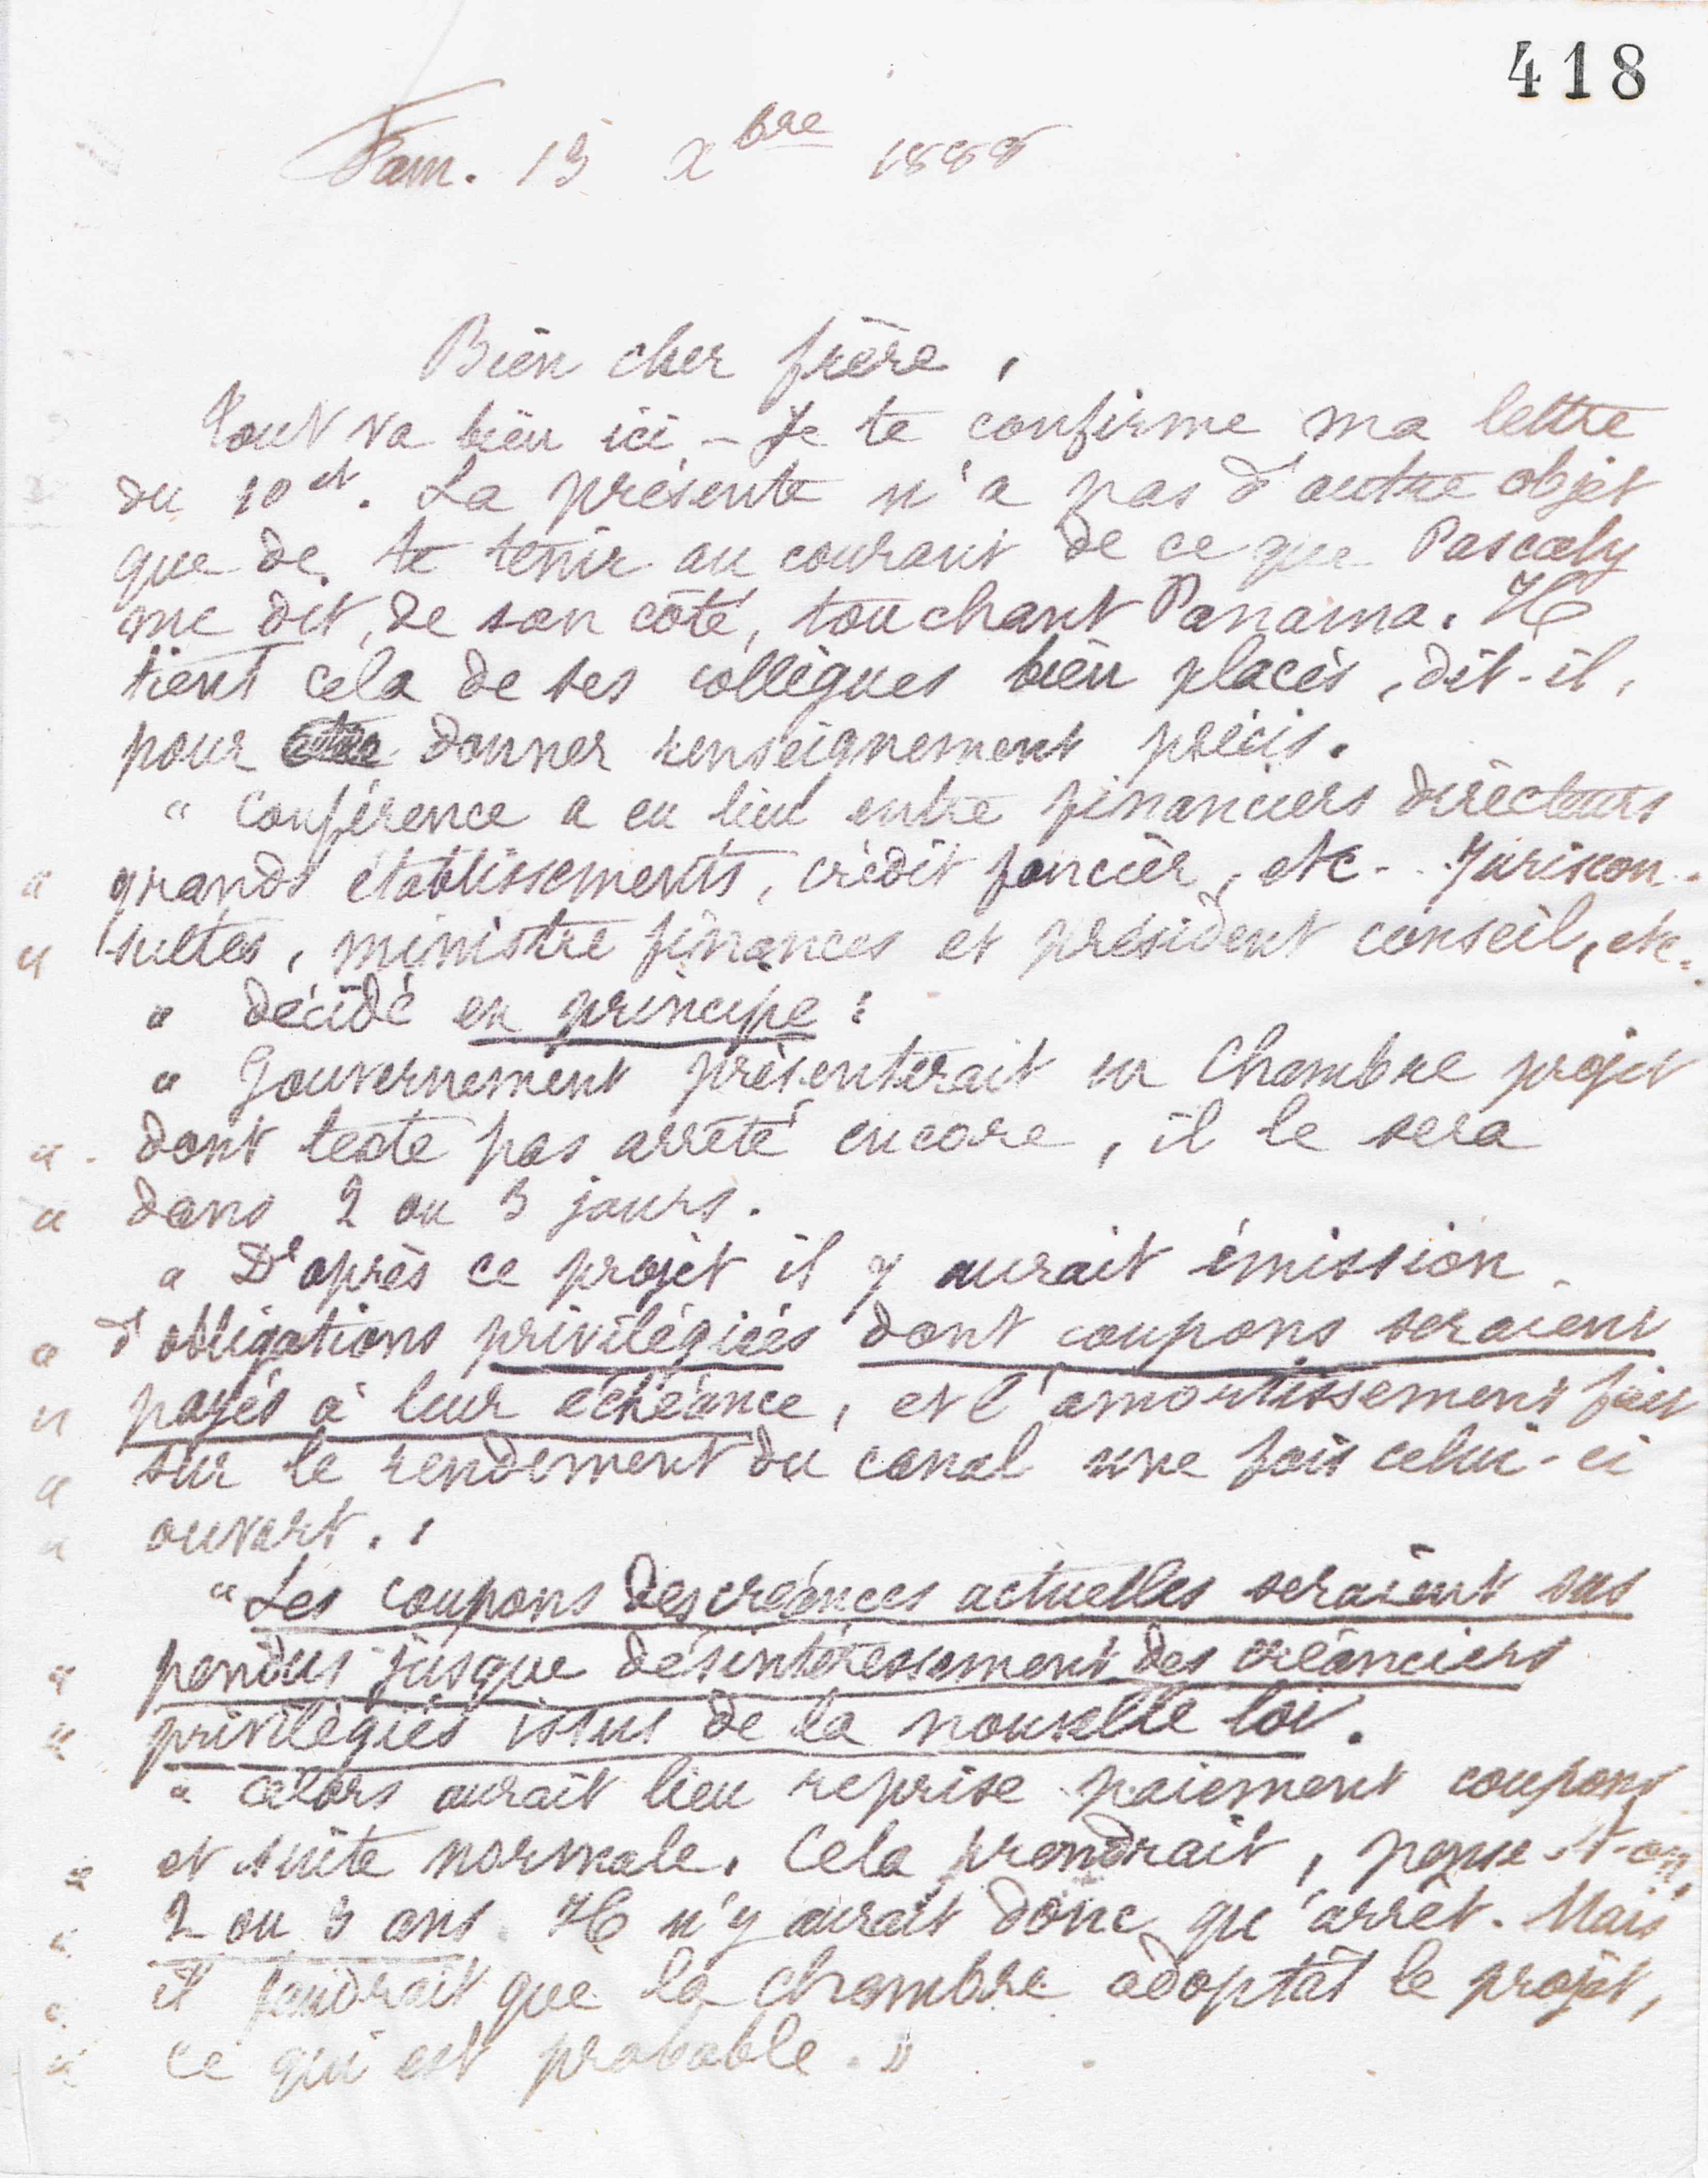 418
Fam. 13 Xbre 1888
Bien cher frère,
Tout va bien ici. - Je te confirme ma lettre
du 10 ct. La présente n'a pas d'autre objet
que de te tenir au courant de ce que Pascaly
me dit, de son côté, touchant Panama. Il
tient cela de ses collègues bien placés, dit-il,
pour donner renseignement précis.
" Conférence a eu lieu entre financiers directeurs
" grands établissements, crédit foncier, etc.. Juriscon-
" sultes, ministre finances et président conseil, etc.
" décidé en principe :
" Gouvernement présenterait sur Chambre projet
" dont texte pas arrêté encore, il le sera
" dans 2 ou 3 jours.
" D'après ce projet il y aurait émission
" d'obligations privilégiées dont coupons seraient
" payés à leur échéance, et l'amortissement fait
" sur le rendement du canal une fois celui-ci
" ouvert..
" Les coupons des créances actuelles seraient sus
" pendus jusque désintéressement des créanciers
" privilégiés issus de la nouvelle loi.
" alors aurait lieu reprise paiement coupons
" et suite normale. Cela prendrait, pense-t-on,
" 2 ou 3 ans. Il n'y aurait donc qu'arrêt. Mais
" il faudrait que la Chambre adoptât le projet,
" ce qui est probable. "